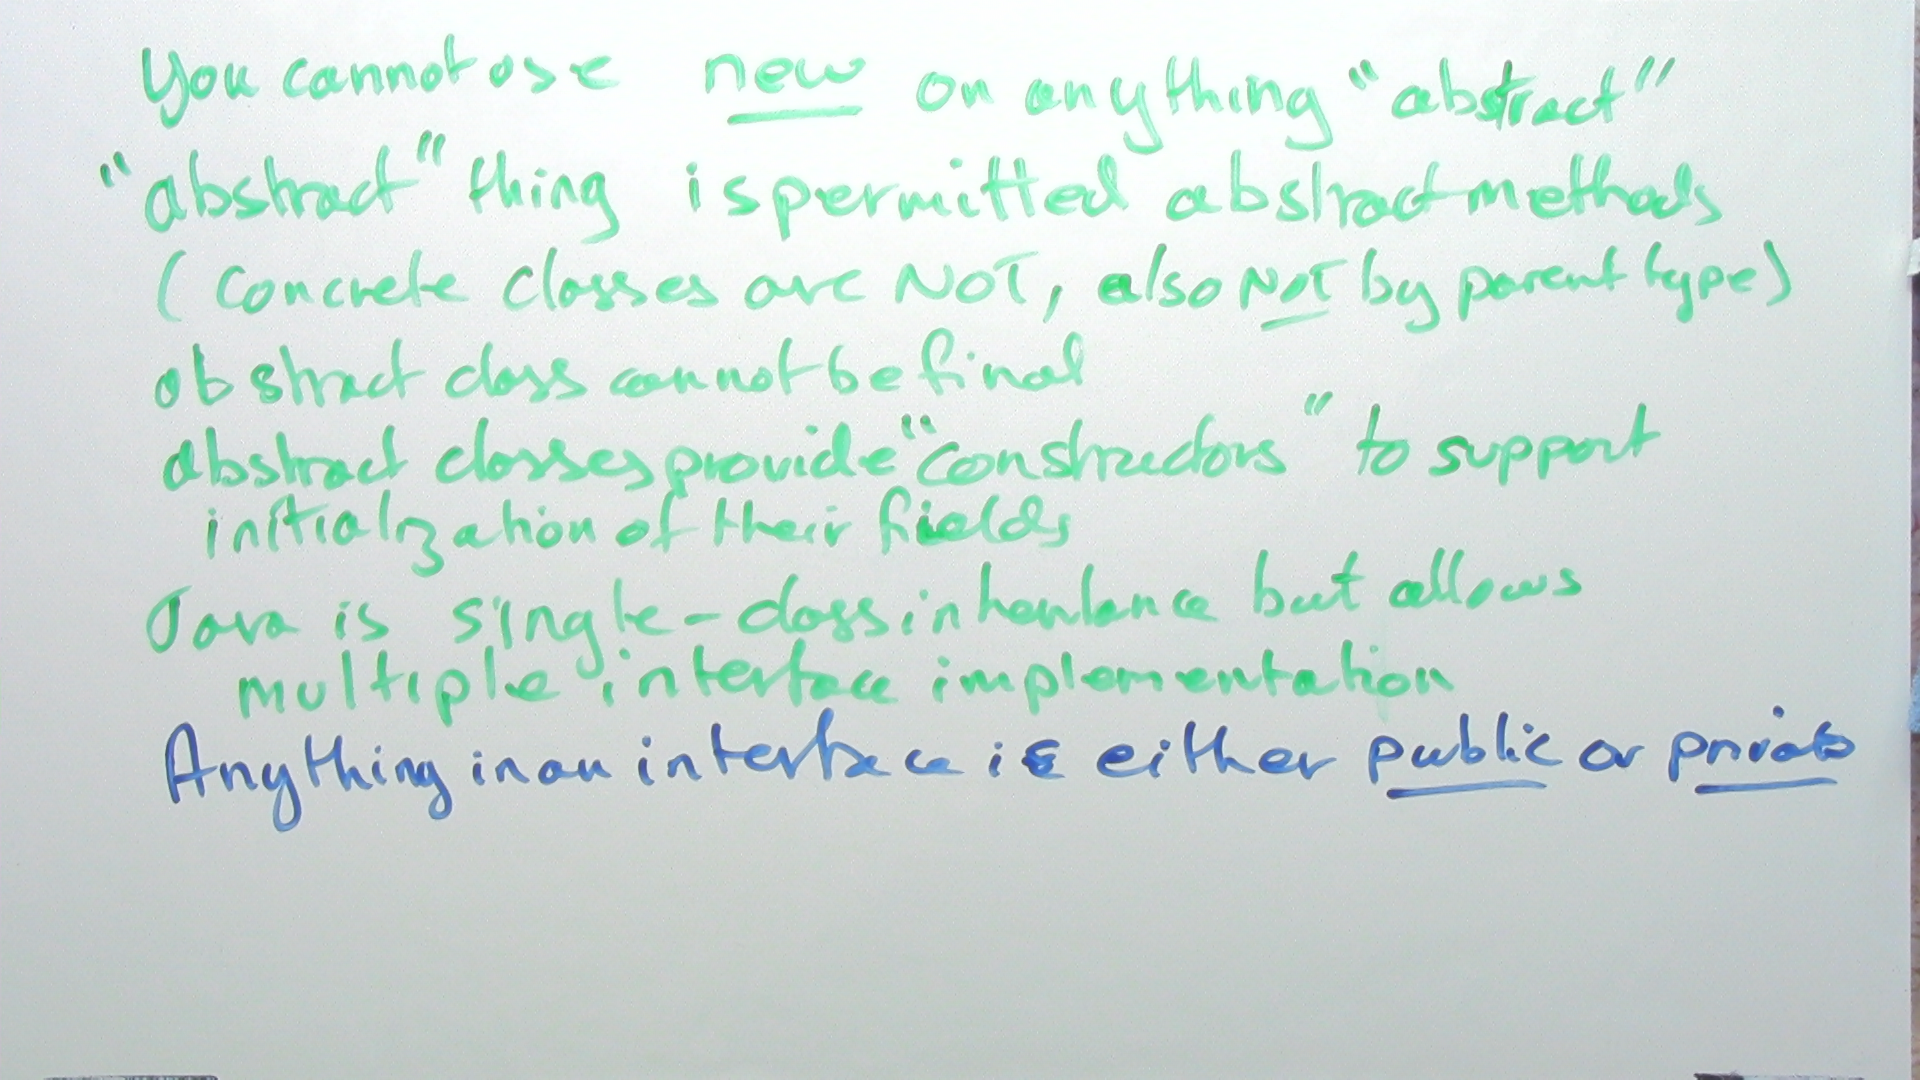 You cannot use new on anything "abstract"
"abstract" thing is permitted abstract methods
(concrete classes are NOT, also NOT by parent type)
abstract class cannot be final
abstract classes provide "constructors" to support
initialization of their fields
Java is single-class inheritance but allows
multiple interface implementation
Anything in an interface is either public or private